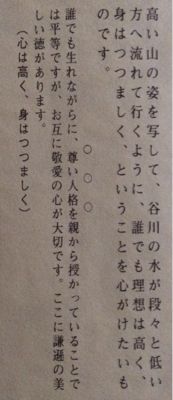 高い山の姿を写して、谷川の水が段々と低い
方へ流れて行くように、誰でも理想は高く、
身はつつましく、ということを心がけたいも
のです。
○ ○ ○
誰でも生れながらに、尊い人格を親から授かっていることで
は平等ですが、お互に敬愛の心が大切です。ここに謙遜の美
しい徳があります。
（心は高く、身はつつましく）